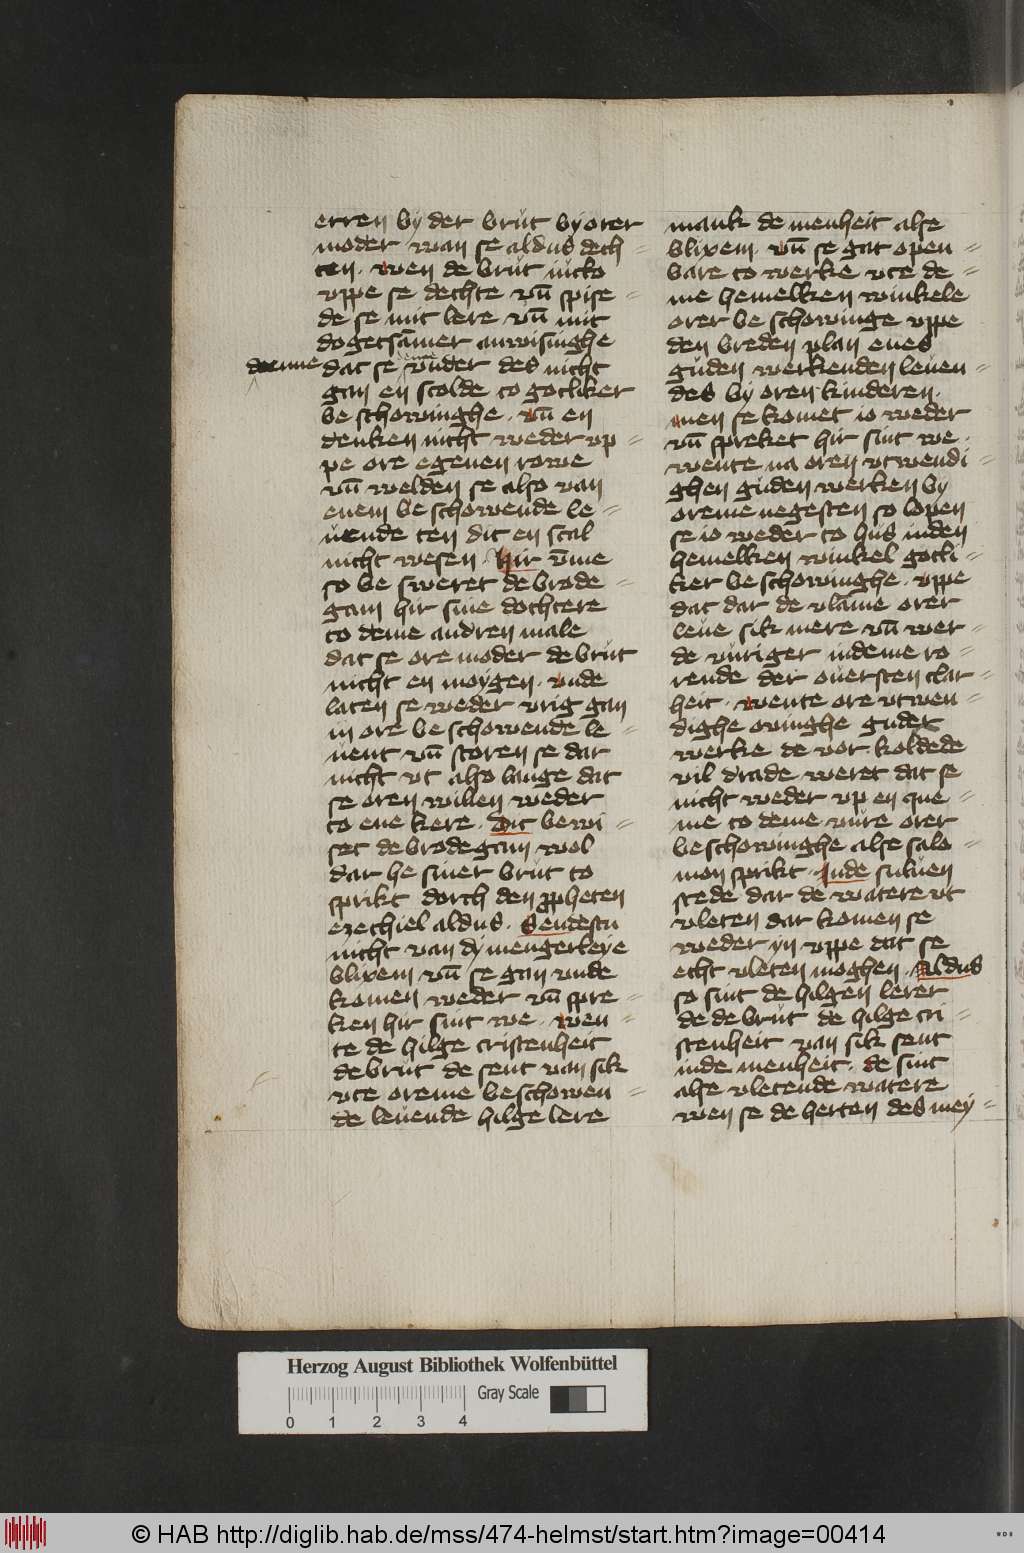 erren by der brut by orer
moder wan se aldus dech-
ten. wen de brut nicko
vppe se dechte vn̄ spise-
de se mit lere vn̄ mit
dogetsāmer anwisinghe
dat se vnder des nicht
gan en scolde to gotliker
be schowinghe. vn̄ en
denken nicht weder vp-
pe ore egenen rowe
vn̄ welden se also van
enem be schowende le-
uende ten dit en scal
nicht wesen. Hir v̄me
so be sweret de brode-
gam hir sine dochtere
to deme andren male
dat se ore moder de brut
nicht en moygen. vnde
laten se weder vrig gan
in ore be schowende le-
uent vn̄ storen se dar
nicht vt also lange dat
se oren willen weder
to ene kere. Dit bewi-
set de brodegam wol
dar he siner brut to
sprikt dorch den ꝓpheten
ezechiel aldus. Sendestu
nicht van dy mengerleye
blixem vn̄ se gan vnde
komen weder vn̄ spre-
ken hir sint we. wen-
te de hilge cristenheit
de brut de sent van sik
vte oreme beschowen-
de leuende hilge lere
mank de menheit alse
blixem. vn̄ se gat open-
bare to werke vte de-
me hemelken winkele
orer be schowinge vppe
den breden plan enes
guden werkenden leuen-
des by oren kinderen.
men se komet io weder
vn̄ spreket hir sint we.
wente na oren vtwendi-
ghen guden werken by
oreme negesten so lopen
se io weder to hus inden
hemelken winkel gotli-
ker be schowinghe. vppe
dat dar de vlāme orer
leue sik mere vn̄ wer-
de vuriger indeme ro-
rende der ouersten clar-
heit. wente ore vtwen-
dighe ouinghe guder
werke de vor koldede
vil drade weret dat se
nicht weder vp en que-
me to deme vure orer
beschowinghe alse salo-
mon sprikt. Inde suluen
stede dar de watere vt
vleten dar komen se
weder yn vppe dat se
echt vleten moghen. Aldus
so sint de hilgen lerer
de de brut de hilge cri-
stenheit van sik sent
inde menheit. de sint
alse vletende watere
wen se de herten des mey-